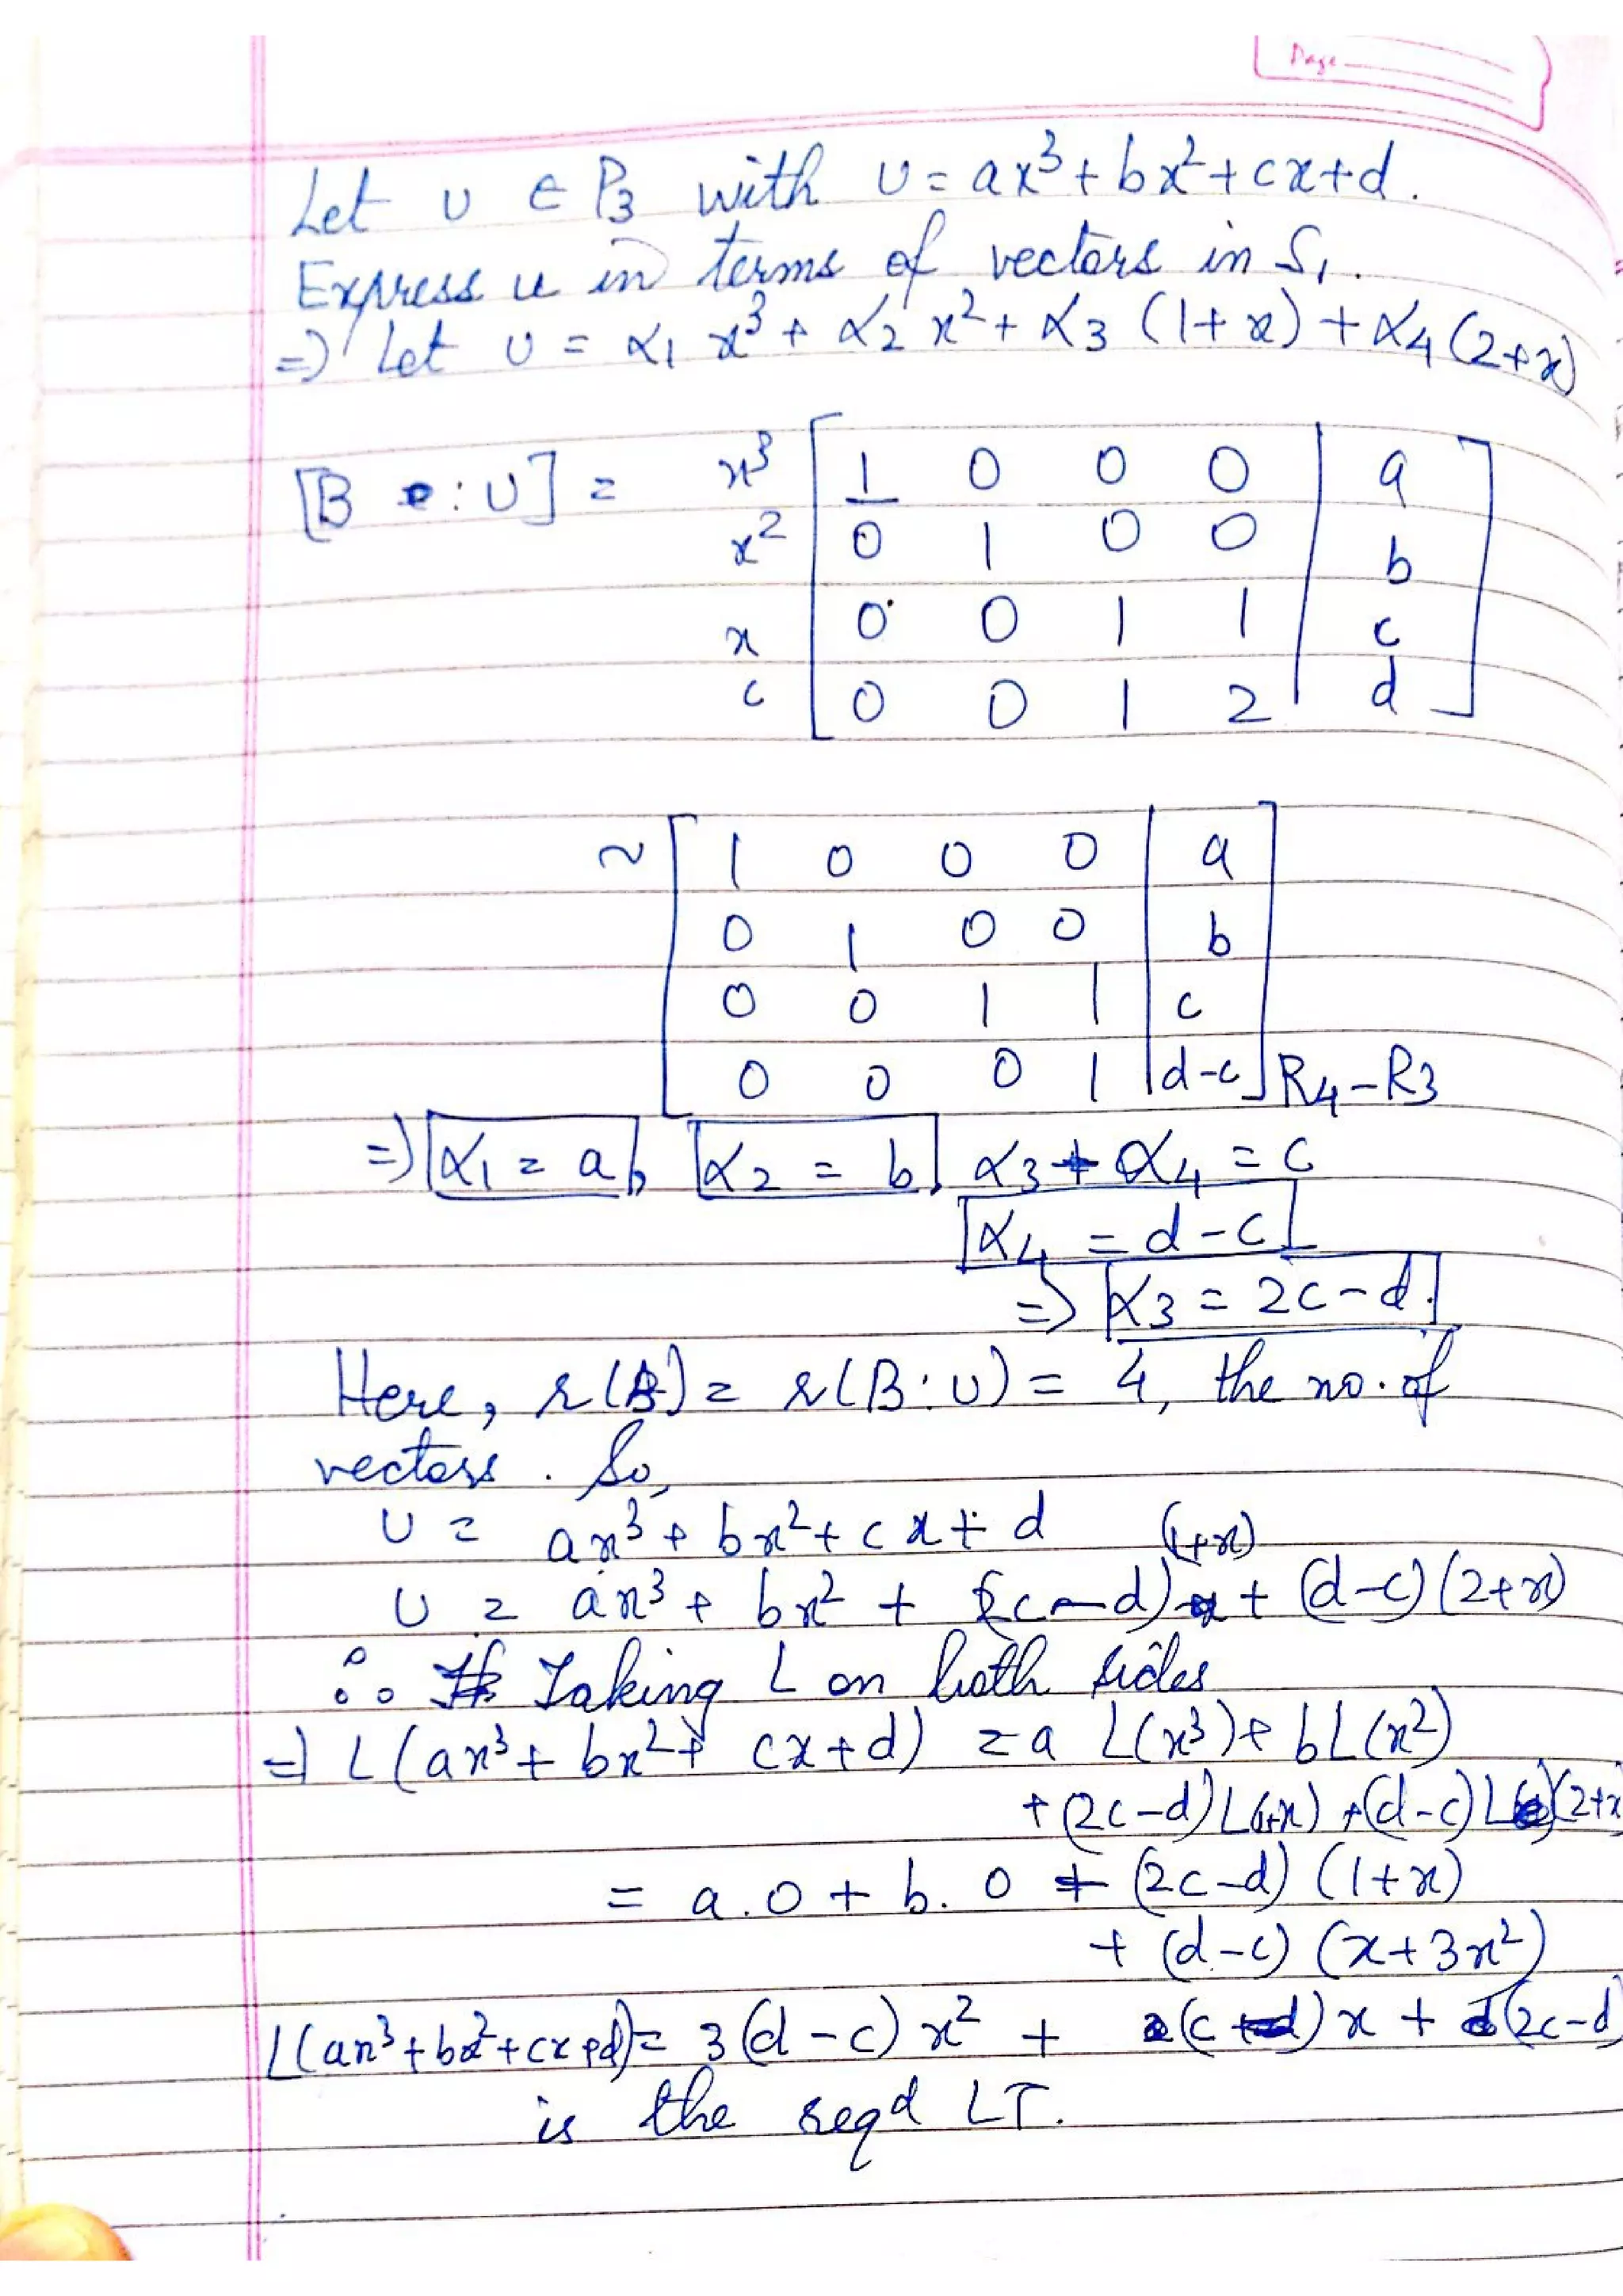 Page
Let u ∈ P3 with u = ax³ + bx² + cx + d.
Express u in terms of vectors in S1.
=> Let u = α1 x³ + α2 x² + α3 (1+x) + α4 (2+x)
[B : U] = x³ [ 1 0 0 0 | a ]
x² 0 1 0 0 | b
x 0 0 1 1 | c
c 0 0 1 2 | d
~ [ 1 0 0 0 | a ]
0 1 0 0 | b
0 0 1 1 | c
0 0 0 1 | d-c ] R4-R3
=> α1 = a, α2 = b, α3 + α4 = c
α4 = d-c
=> α3 = 2c-d.
Here, r(B) = r(B:U) = 4, the no. of
vectors. So,
U = ax³ + bx² + cx + d
U = ax³ + bx² + (2c-d)(1+x) + (d-c)(2+x)
∴ Taking L on both sides
=> L(ax³ + bx² + cx + d) = a L(x³) + bL(x²)
+ (2c-d) L(1+x) + (d-c) L(2+x
= a.0 + b.0 + (2c-d) (1+x)
+ (d-c) (x+3x²)
L(ax³+bx²+cx+d) = 3(d-c)x² + (c)x + (2c-d
is the reqd LT.